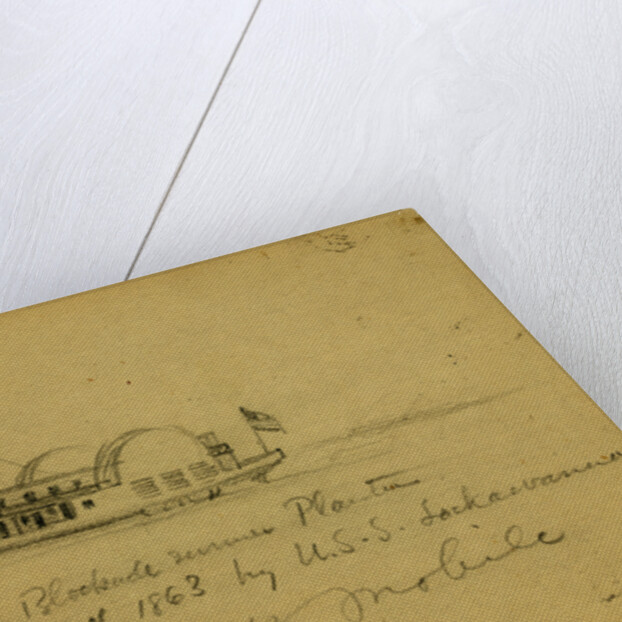 Blockade runner Planter
1863 by U.S.S. Lackawanna
Mobile